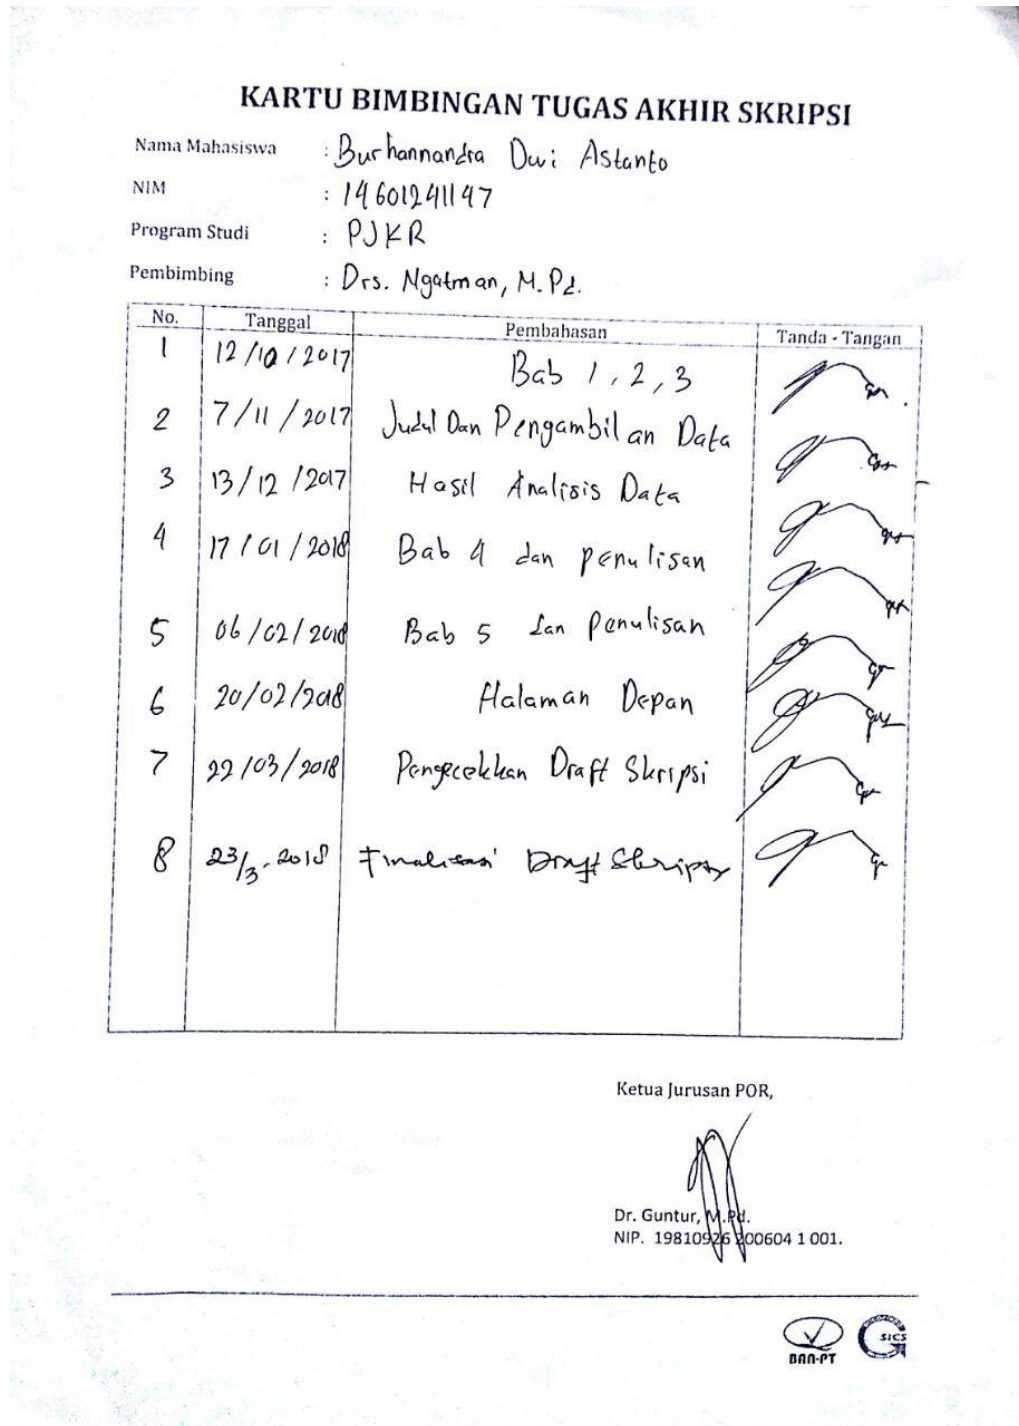 KARTU BIMBINGAN TUGAS AKHIR SKRIPSI
Nama Mahasiswa : Burhannandra Dwi Astanto
NIM : 14601241147
Program Studi : PJKR
Pembimbing : Drs. Ngatman, M.Pd.
No. Tanggal Pembahasan Tanda - Tangan
1 12/10/2017 Bab 1, 2, 3
2 7/11/2017 Judul Dan Pengambilan Data
3 13/12/2017 Hasil Analisis Data
4 17/01/2018 Bab 4 dan penulisan
5 06/02/2018 Bab 5 dan penulisan
6 20/02/2018 Halaman Depan
7 22/03/2018 Pengecekkan Draft Skripsi
8 23/3.2018 Finalisasi Draft Skripsi
Ketua Jurusan POR,
Dr. Guntur, M.Pd.
NIP. 19810926 200604 1 001.
BAN-PT
SICS